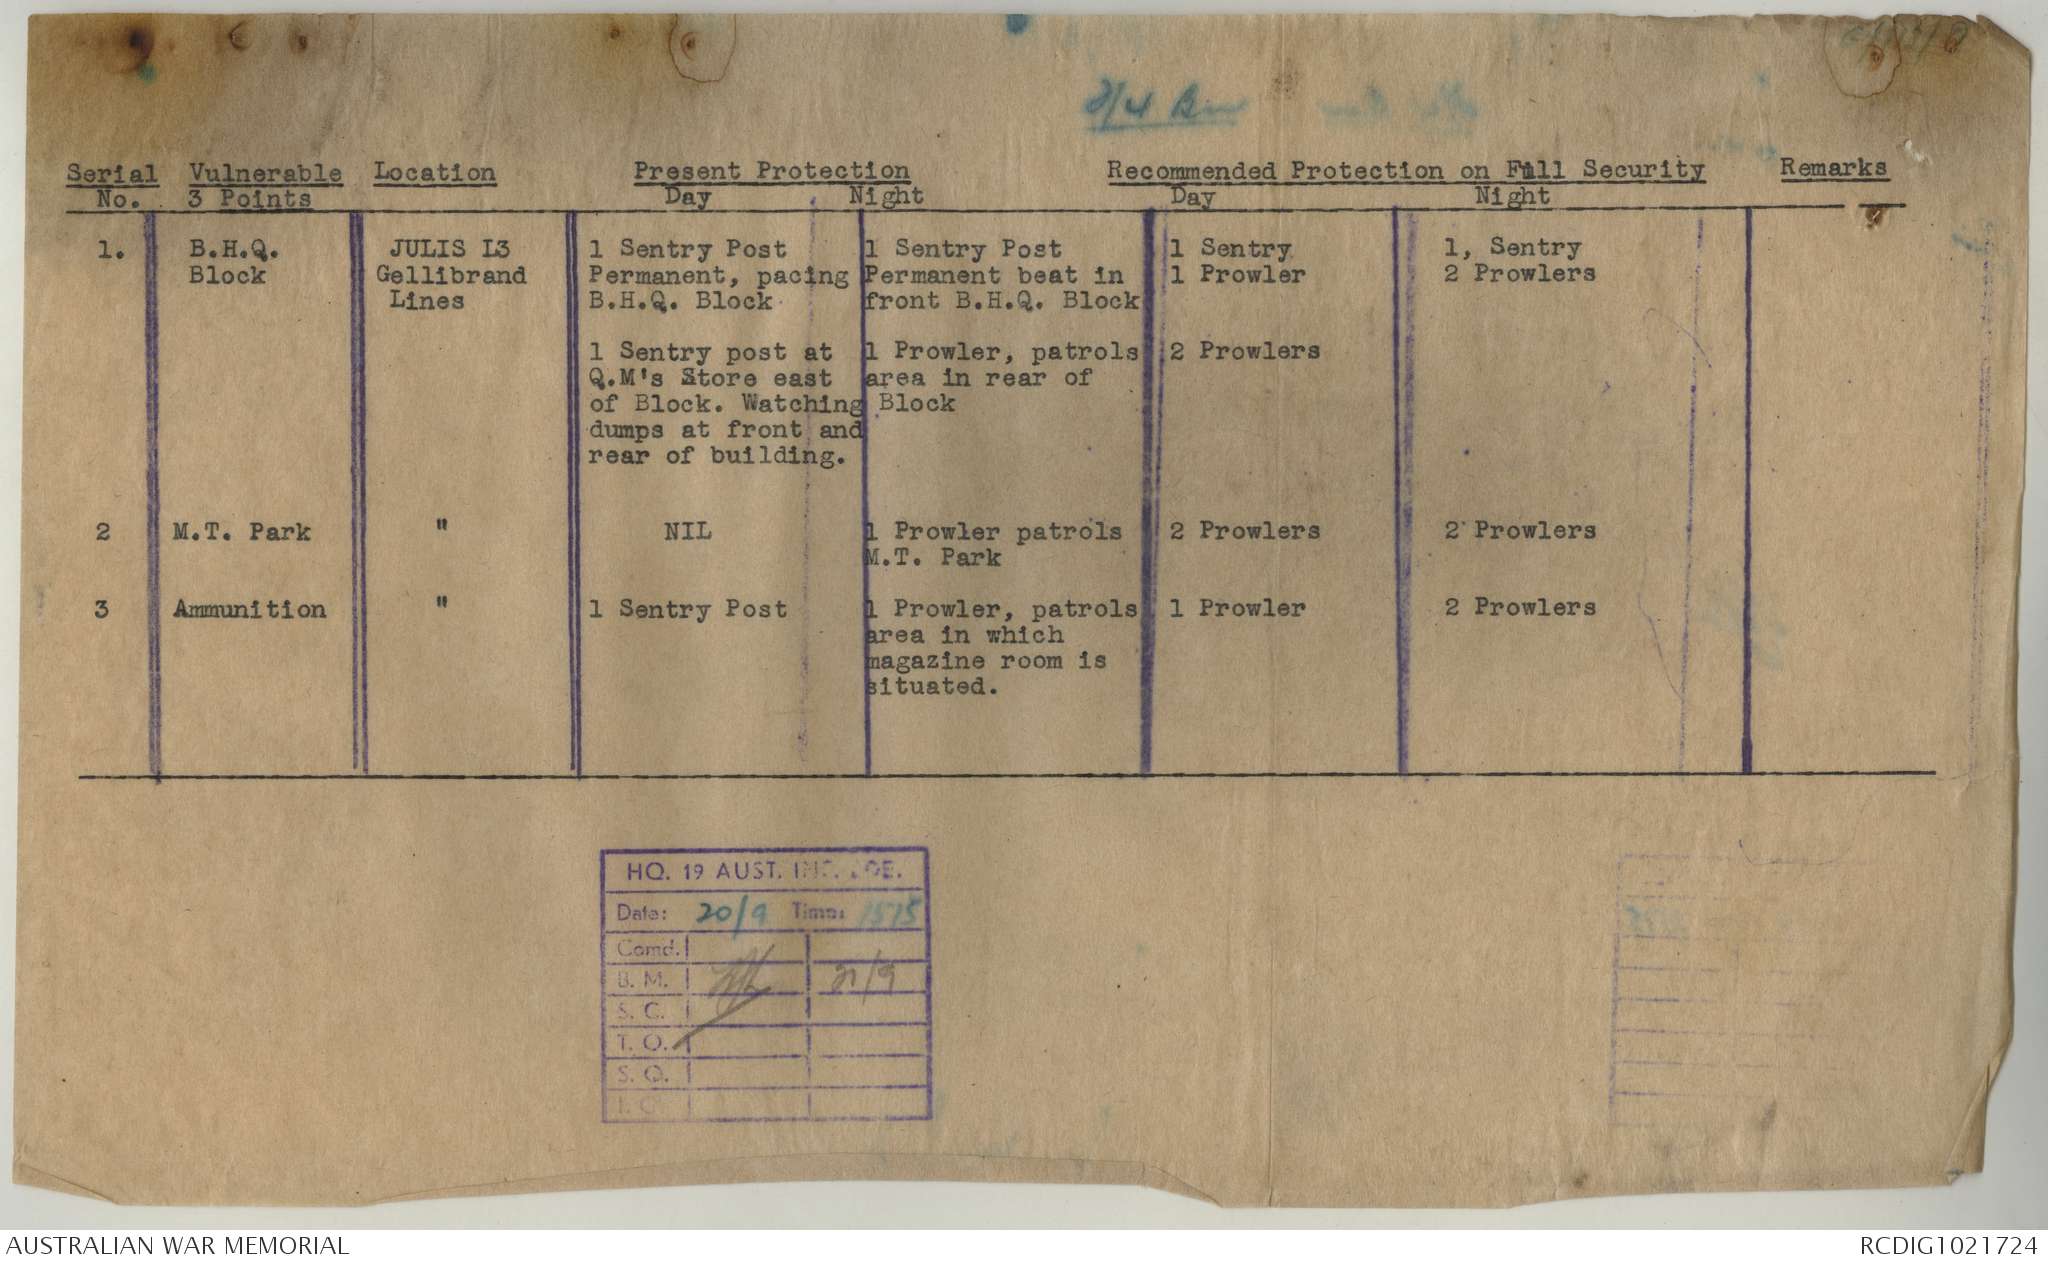 2/4 Bn
Serial Vulnerable Location Present Protection Recommended Protection on Full Security Remarks
No. 3 Points Day Night Day Night
1. B.H.Q. JULIS L3 1 Sentry Post 1 Sentry Post 1 Sentry 1, Sentry
Block Gellibrand Permanent, pacing Permanent beat in 1 Prowler 2 Prowlers
Lines B.H.Q. Block front B.H.Q. Block
1 Sentry post at 1 Prowler, patrols 2 Prowlers
Q.M's Store east area in rear of
of Block. Watching Block
dumps at front and
rear of building.
2 M.T. Park " NIL 1 Prowler patrols 2 Prowlers 2 Prowlers
M.T. Park
3 Ammunition " 1 Sentry Post 1 Prowler, patrols 1 Prowler 2 Prowlers
area in which
magazine room is
situated.
HQ. 19 AUST. INF. BDE.
Date: 20/9 Time: 1515
Comd.
B. M. 21/9
S. C.
T. O.
S. O.
I. O.
AUSTRALIAN WAR MEMORIAL RCDIG1021724